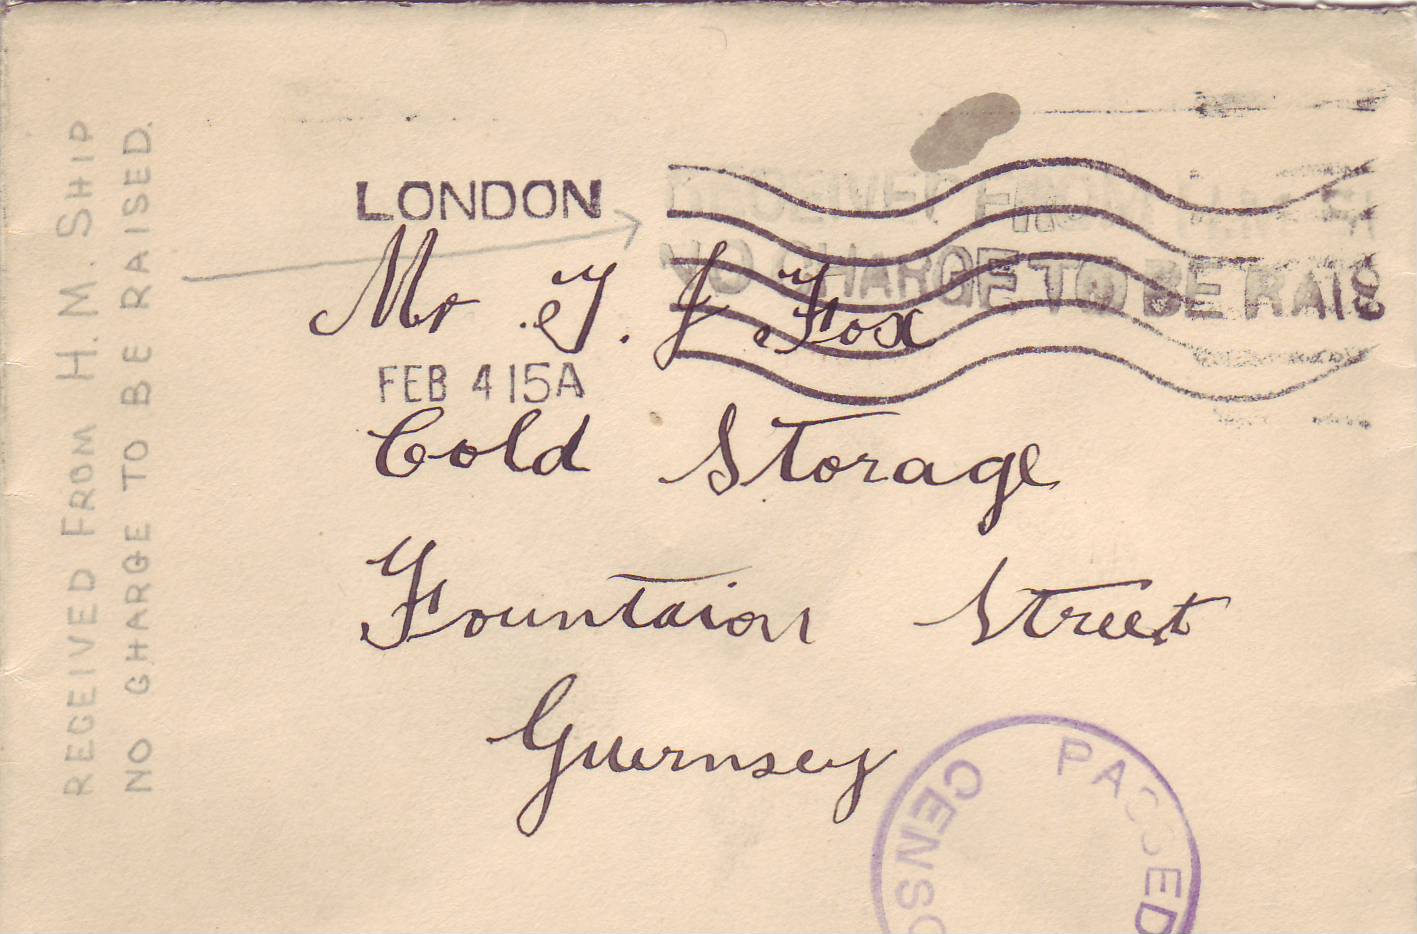 RECEIVED FROM H.M. SHIP
NO CHARGE TO BE RAISED.
LONDON
FEB 4 15A
RECEIVED FROM H.M.
NO CHARGE TO BE RAIS
Mr T. J Fox
Cold Storage
Fountaion Street
Guernsey
PASSED
CENSO